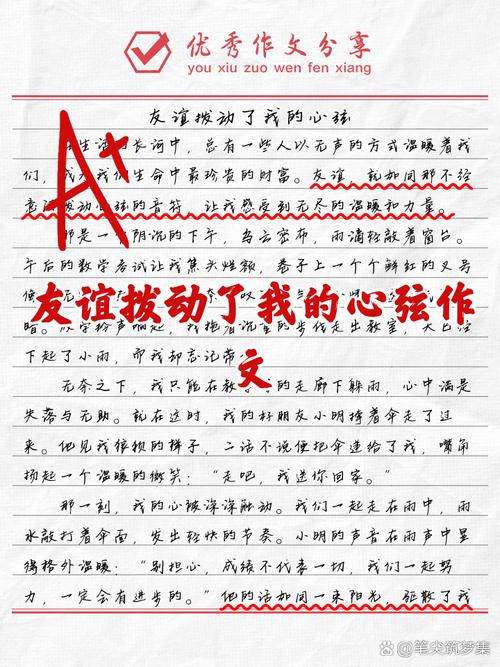 优秀作文分享
you xiu zuo wen fen xiang
友谊拨动了我的心弦
生活的长河中，总有一些人以无声的方式温暖着我
们，成为我们生命中最珍贵的财富。友谊，就如同那不经
意间拨动心弦的音符，让我感受到无尽的温暖和力量。
A+
那是一个阴沉的下午，乌云密布，雨滴轻敲着窗台。
午后的数学考试让我焦头烂额，卷子上一个个鲜红的叉号
友谊拨动了我的心弦作
文
暗。放学铃声响起，我拖着沉重的步伐走出教室，天已经
下起了小雨，而我却忘记带
无奈之下，我只能在教学的走廊下躲雨，心中满是
失落与无助。就在这时，我的好朋友小明撑着伞走了过
来。他见我狼狈的样子，二话不说便把伞递给了我，嘴角
扬起一个温暖的微笑：“走吧，我送你回家。”
那一刻，我的心被深深触动。我们一起走在雨中，雨
水敲打着伞面，发出轻快的节奏。小明的声音在雨声中显
得格外温暖：“别担心，成绩不代表一切，我们一起努
力，一定会有进步的。”他的话如同一束阳光，驱散了我
笔尖筑梦集